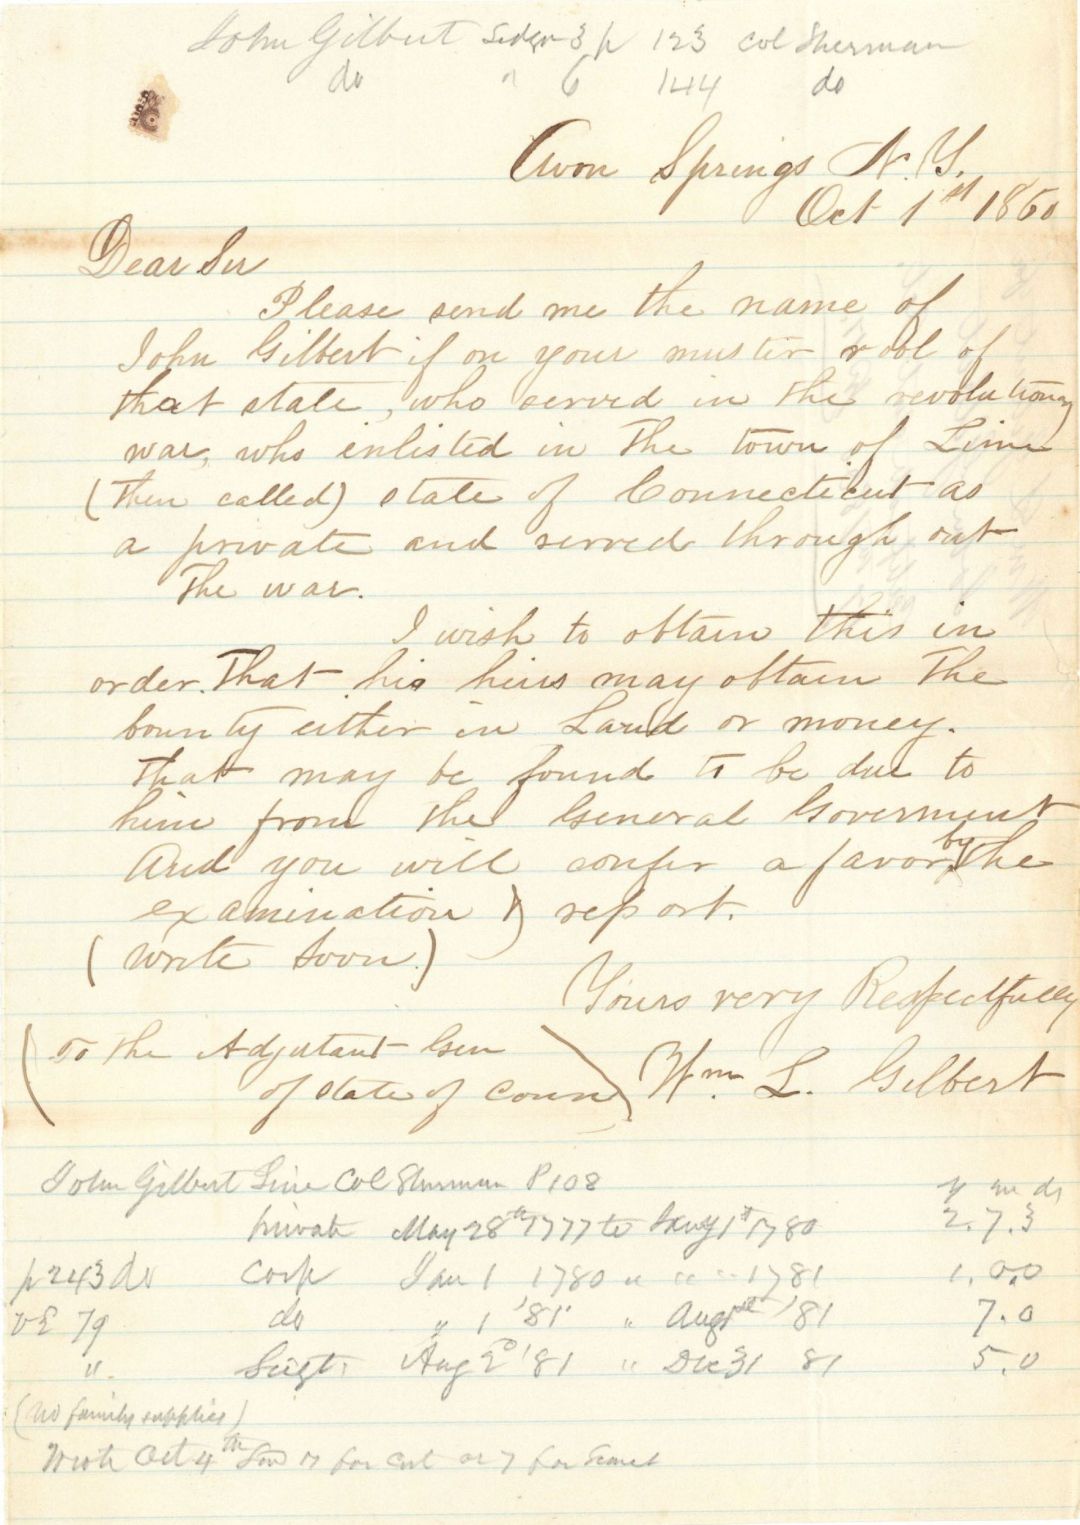 John Gilbert p 123 Col Sherman
do " 6 144 do
Avon Springs N. Y.
Oct 1st 1860
Dear Sir
Please send me the name of
John Gilbert if on your muster rool of
that state, who served in the revolutionary
war, who enlisted in the town of Lime
(then called) state of Connecticut as
a private and served through out
the war.
I wish to obtain this in
order. that his heirs may obtain the
bounty either in Land or money.
that may be found to be due to
him from the General Goverment
And you will confer a favor by the
examination & report.
(write soon.)
Yours very Respectfully
(to the Adjutant Gen
of state of Conn)
Wm. L. Gilbert
John Gilbert Line Col Sherman P 108
y m ds
private May 28th 1777 to Jany 1st 1780 2. 7. 3
p 243 do Corp Jan 1 1780 " " " 1781 1. 0. 0
79 do " 1 '81 " Aug 1st '81 7. 0
" Sergt. Aug 2d '81 " Dec 31 81 5. 0
(No family supplies)
Wrote Oct 4th for or for